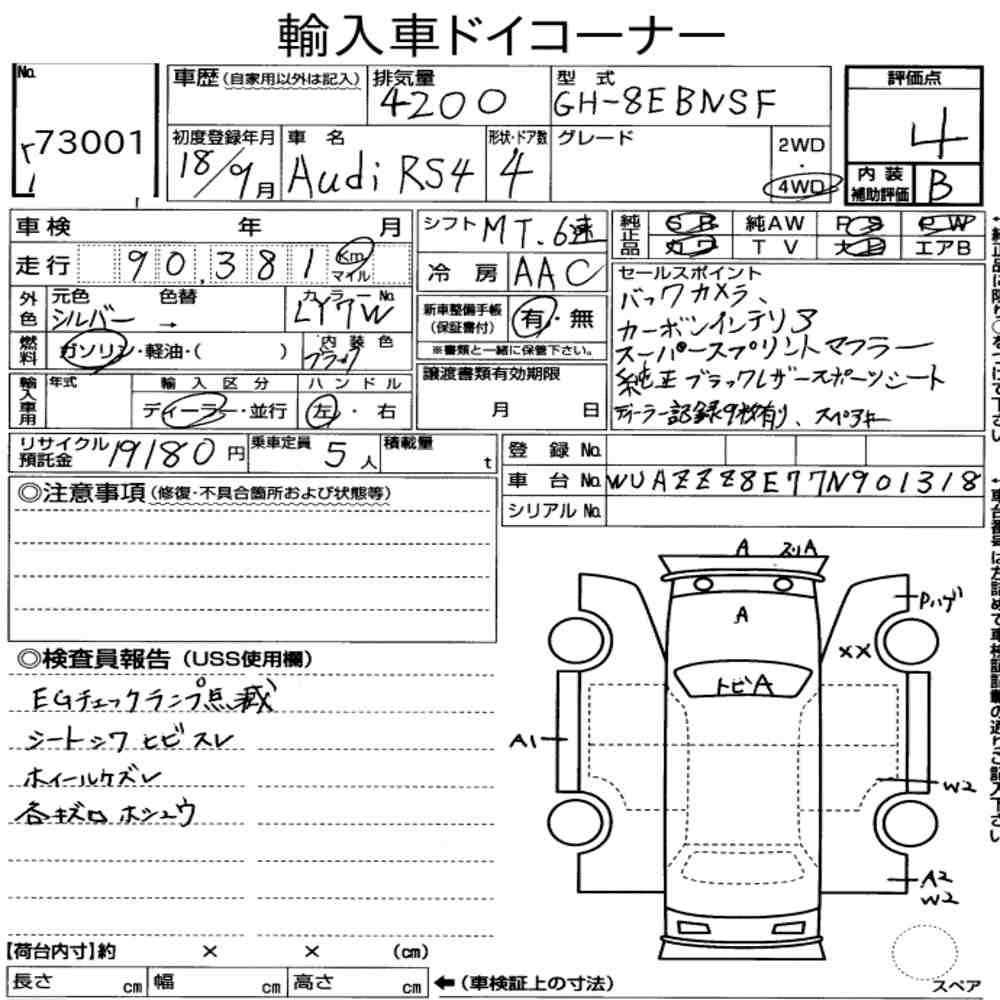 輸入車ドイコーナー
No.
73001
車歴(自家用以外は記入)
排気量
4200
型 式
GH-8EBNSF
評価点
4
初度登録年月
18/9月
車 名
Audi RS4
形状・ドア数
4
グレード
2WD
・
4WD
内 装
補助評価
B
車検 年 月
走行 90,381 Km
マイル
シフト MT.6速
冷 房 AAC
純正品
SR 純AW PS PW
カワ TV エアB
外色
元色 色替 カラーNo.
シルバー → LY7W
燃料
ガソリン・軽油・( )
内装色
ブラック
新車整備手帳
(保証書付)
有・無
※書類と一緒に保管下さい。
セールスポイント
バックカメラ、
カーボンインテリア
スーパースプリントマフラー
純正ブラックレザースポーツシート
ディーラー記録9枚有り、スペアキー
輸入車用
年式
輸入区分
ディーラー・並行
ハンドル
左・右
譲渡書類有効期限
月 日
リサイクル
預託金
19180円
乗車定員
5人
積載量
t
登 録 No.
車 台 No. WUAZZZ8E77N901318
シリアル No.
◎注意事項(修復・不具合箇所および状態等)
◎検査員報告(USS使用欄)
EGチェックランプ点灯
シートシワ ヒビ スレ
ホイールケズレ
各キズ ロ ホシュウ
A
スリA
A
Pハゲ
××
トビA
A1
W2
A2
W2
スペア
【荷台内寸】約 × × (cm)
長さ cm 幅 cm 高さ cm ←(車検証上の寸法)